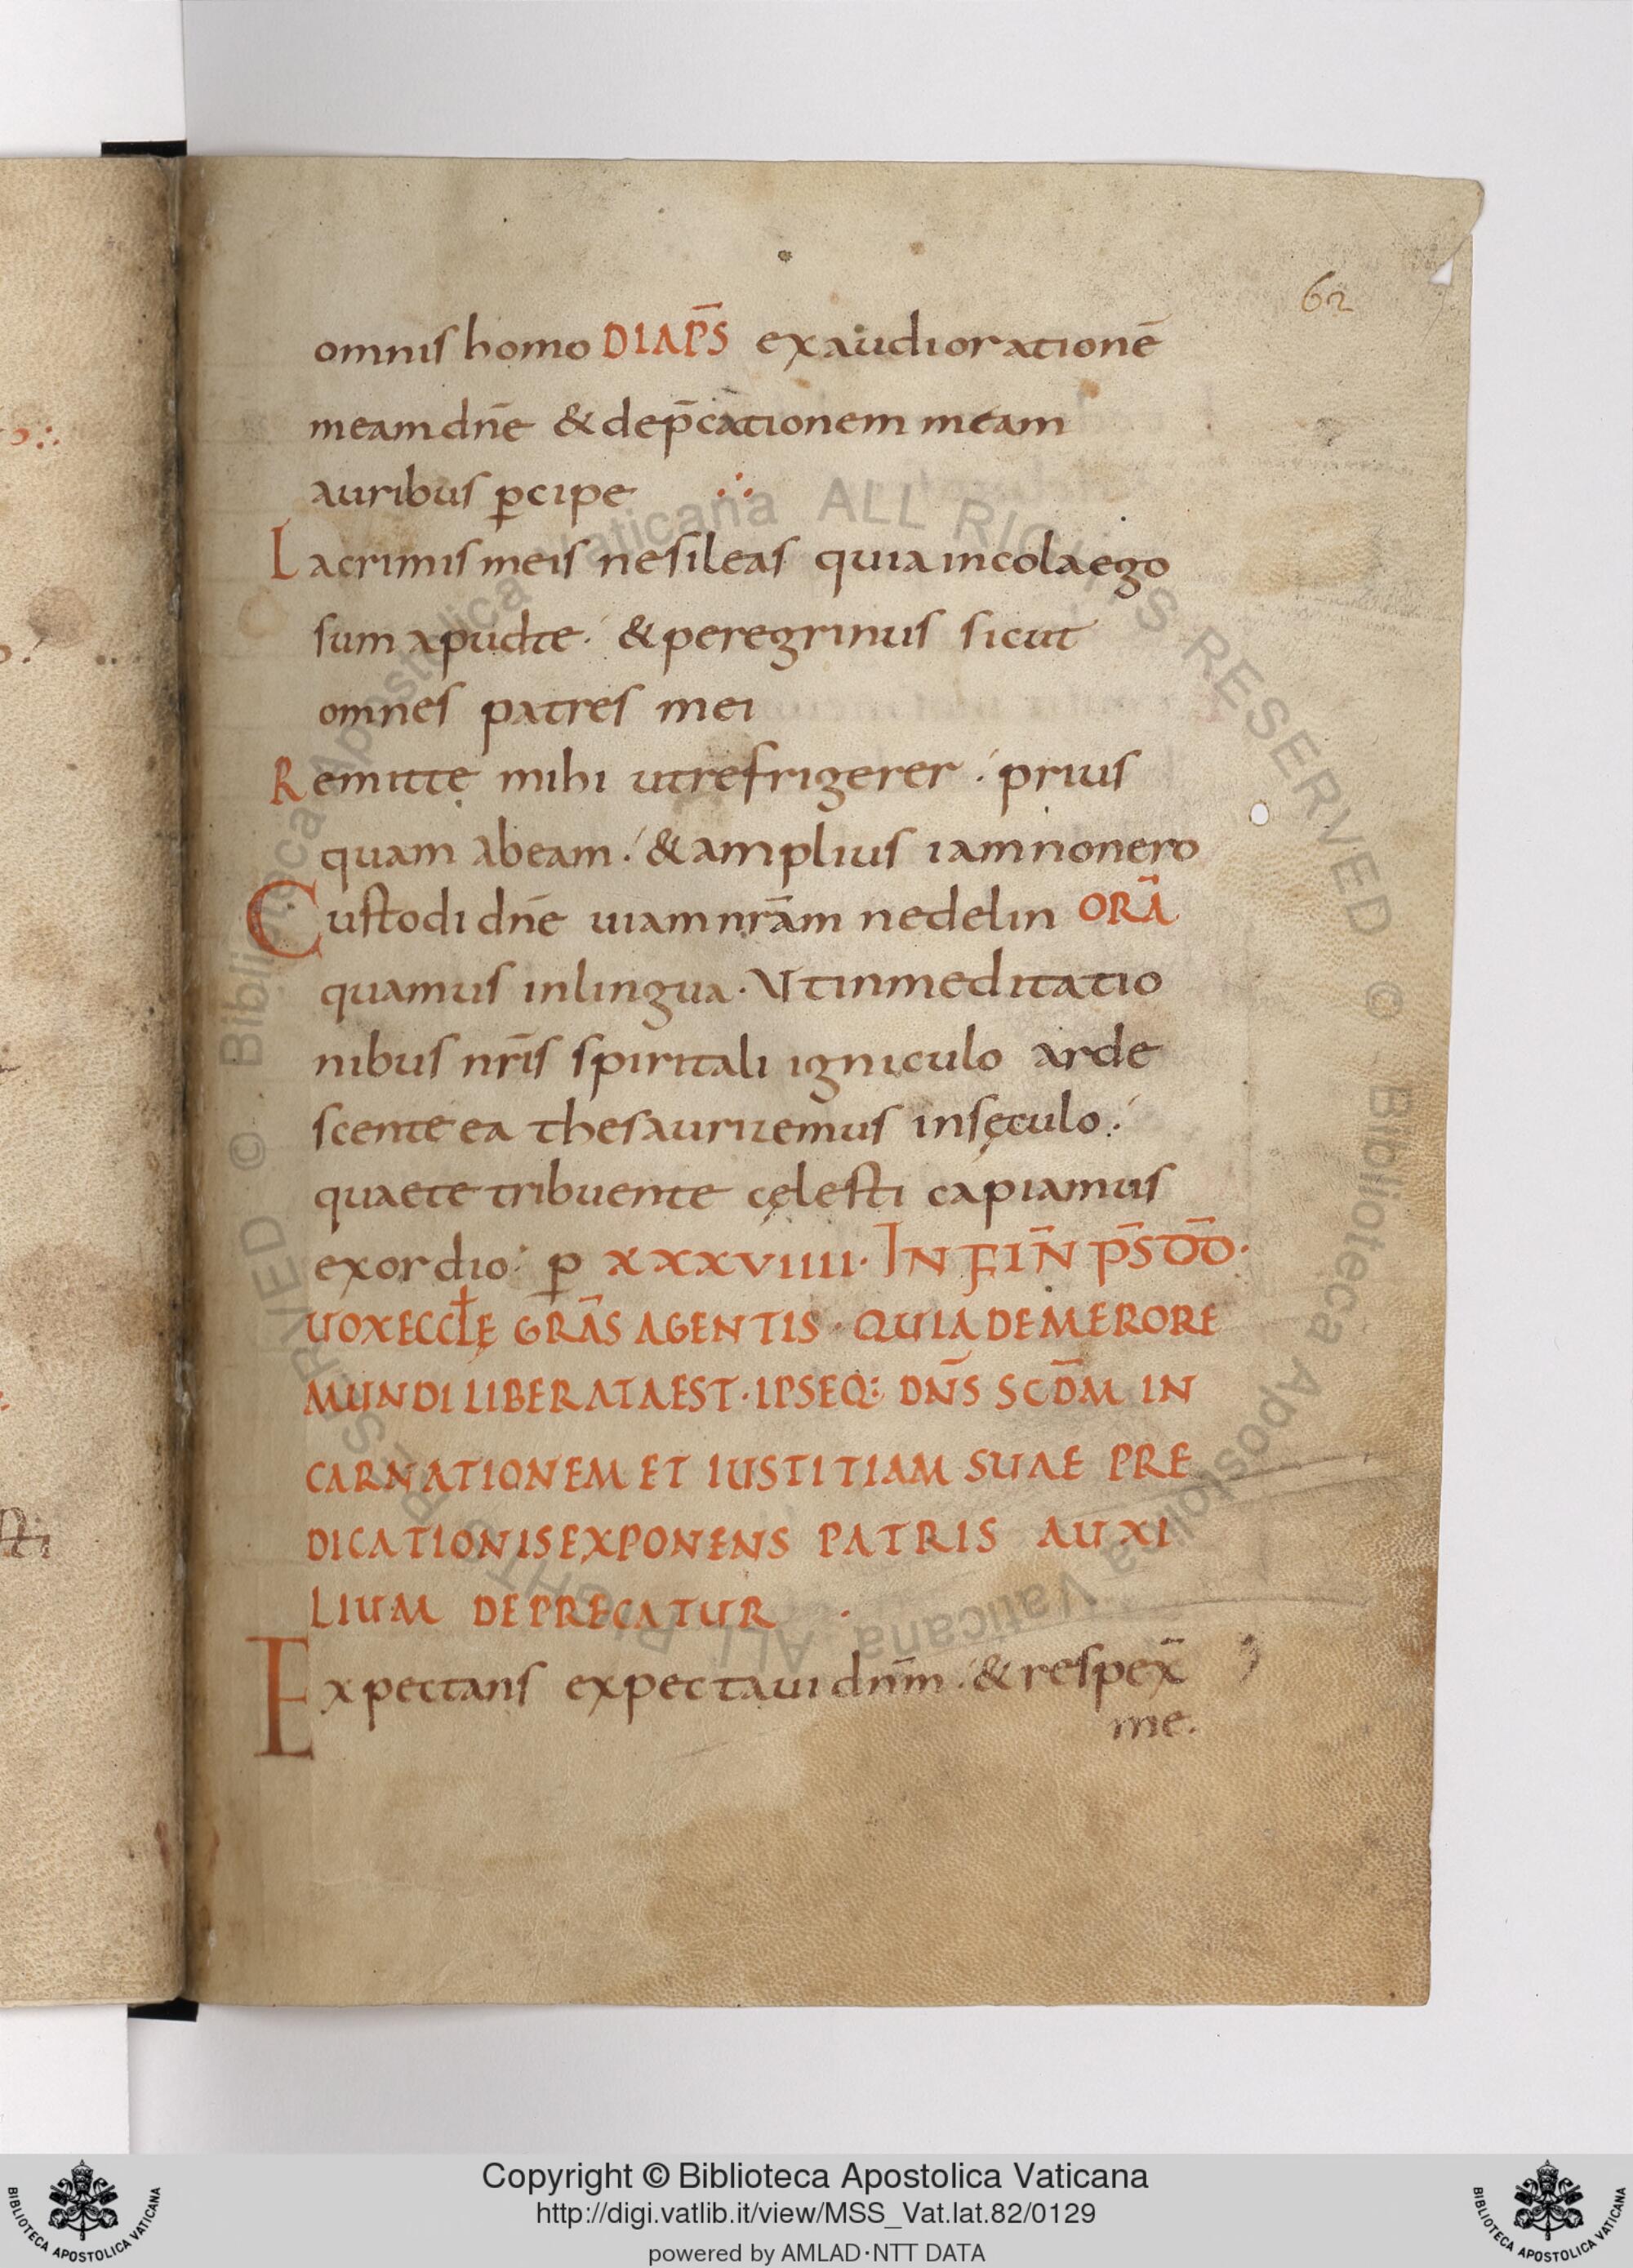 62
omnis homo DIAPS̄ exaudi orationē
meam dn̄e & dep̄cationem meam
auribus ꝑcipe ∴
Lacrimis meis ne sileas quia incola ego
sum apud te· & peregrinus sicut
omnes patres mei
Remitte mihi ut refrigerer· prius
quam abeam· & amplius iam non ero
Custodi dn̄e uiam nr̄am ne delin ORĀ
quamus in lingua· Ut in meditatio
nibus nr̄is spiritali igniculo arde
scente ea thesaurizemus in sęculo·
quae te tribuente cęlesti capiamus
exordio: ꝑ XXXVIIII· IN FIN̄ PS̄ DD̄·
UOX ECCLĘ GRĀS AGENTIS· QUIA DE MERORE
MUNDI LIBERATA EST· IPSEQ: DN̄S SCDM̄ IN
CARNATIONEM ET IUSTITIAM SUAE PRE
DICATIONIS EXPONENS PATRIS AUXI
LIUM DEPRECATUR ·
Expectans expectaui dnm̄· & respex̄
me.
Copyright © Biblioteca Apostolica Vaticana
http://digi.vatlib.it/view/MSS_Vat.lat.82/0129
powered by AMLAD·NTT DATA
BIBLIOTECA APOSTOLICA VATICANA
BIBLIOTECA APOSTOLICA VATICANA
© Biblioteca Apostolica Vaticana ALL RIGHTS RESERVED © Biblioteca Apostolica Vaticana ALL RIGHTS RESERVED